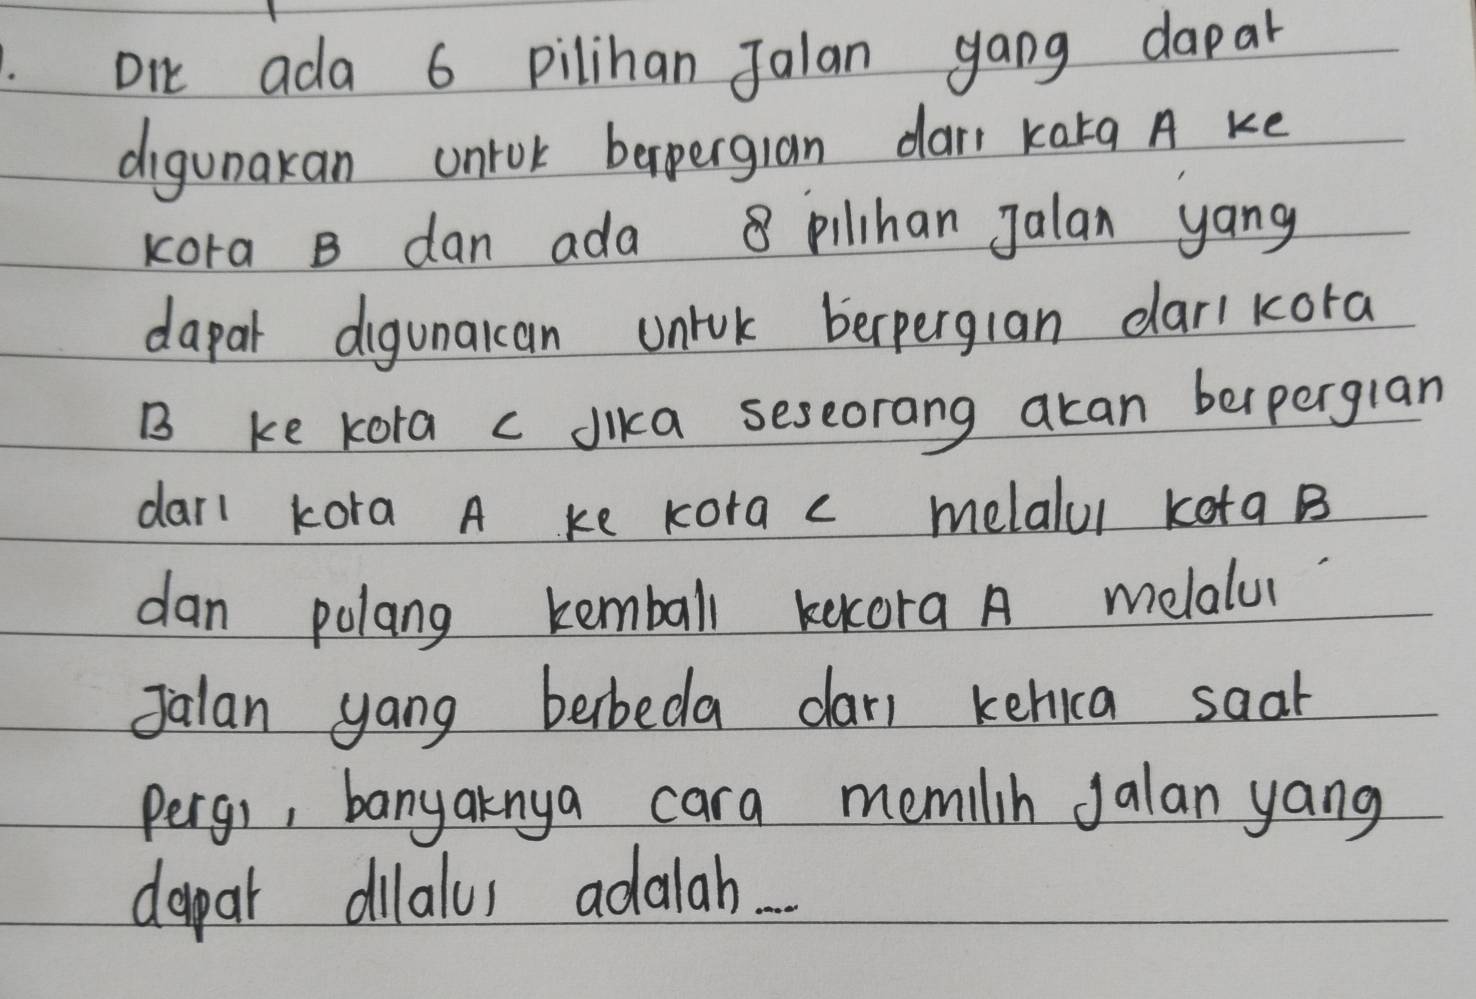 . Dik ada 6 pilihan Jalan yang dapat
digunakan untuk berpergian dari kota A ke
kota B dan ada 8 pilihan Jalan yang
dapat digunakan untuk berpergian dari kota
B ke kota C Jika seseorang akan berpergian
dari kota A ke kota C melalui kota B
dan pulang kembali kekota A melalui
Jalan yang berbeda dari ketika saat
pergi, banyaknya cara memilih Jalan yang
dapat dilalui adalah....